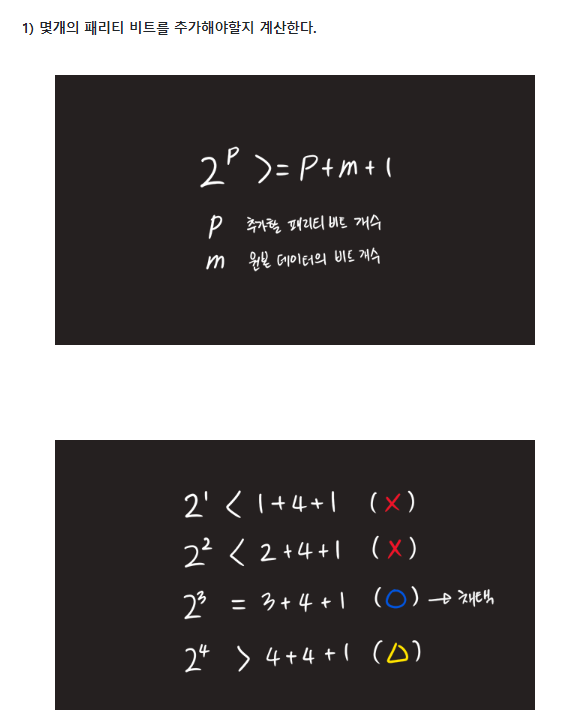 1) 몇개의 패리티 비트를 추가해야할지 계산한다.
2ᴾ >= P+m+1
P 추가할 패리티 비트 개수
m 원본 데이터의 비트 개수
2¹ < 1+4+1 (X)
2² < 2+4+1 (X)
2³ = 3+4+1 (O) → 채택
2⁴ > 4+4+1 (△)